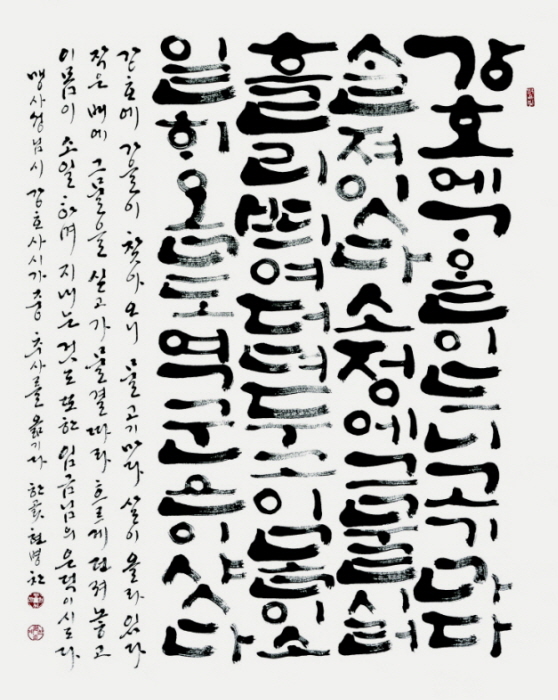 강호에ᄀᆞ을이드니고기마다
ᄉᆞᆯ져잇다소정에그믈시러
흘리ᄯᅴ여더뎌두고이몸이소
일ᄒᆡ옴도역군은이샷다
강호에 가을이 찾아오니 물고기마다 살이 올라 있다
작은 배에 그물을 싣고 가 물결따라 흐르게 던져 놓고
이 몸이 소일하며 지내는 것도 또한 임금님의 은덕이시도다
맹사성님 시 강호사시가 중 추사를 옮기다 한곬 현병찬